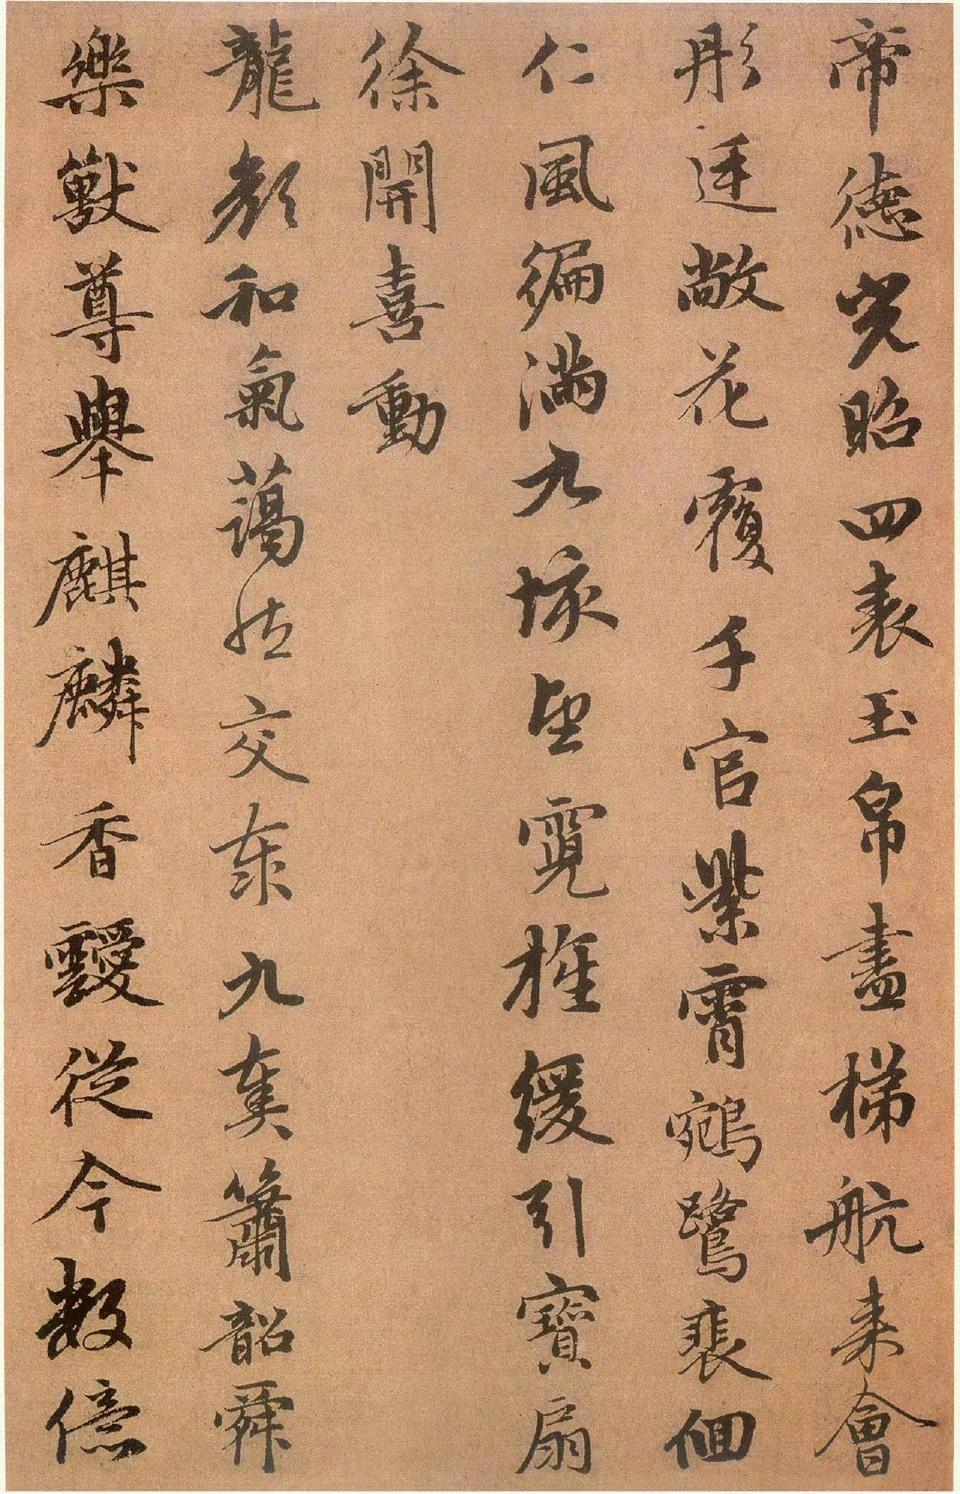 帝德光昭四表玉帛盡梯航来會
彤廷敞花覆千官紫霄鵷鷺裴佪
仁風徧滿九垓望霓旌緩引寶扇
徐開喜動
龍顏和氣藹然交泰九奏簫韶舜
樂獸尊舉麒麟香靉從今數億